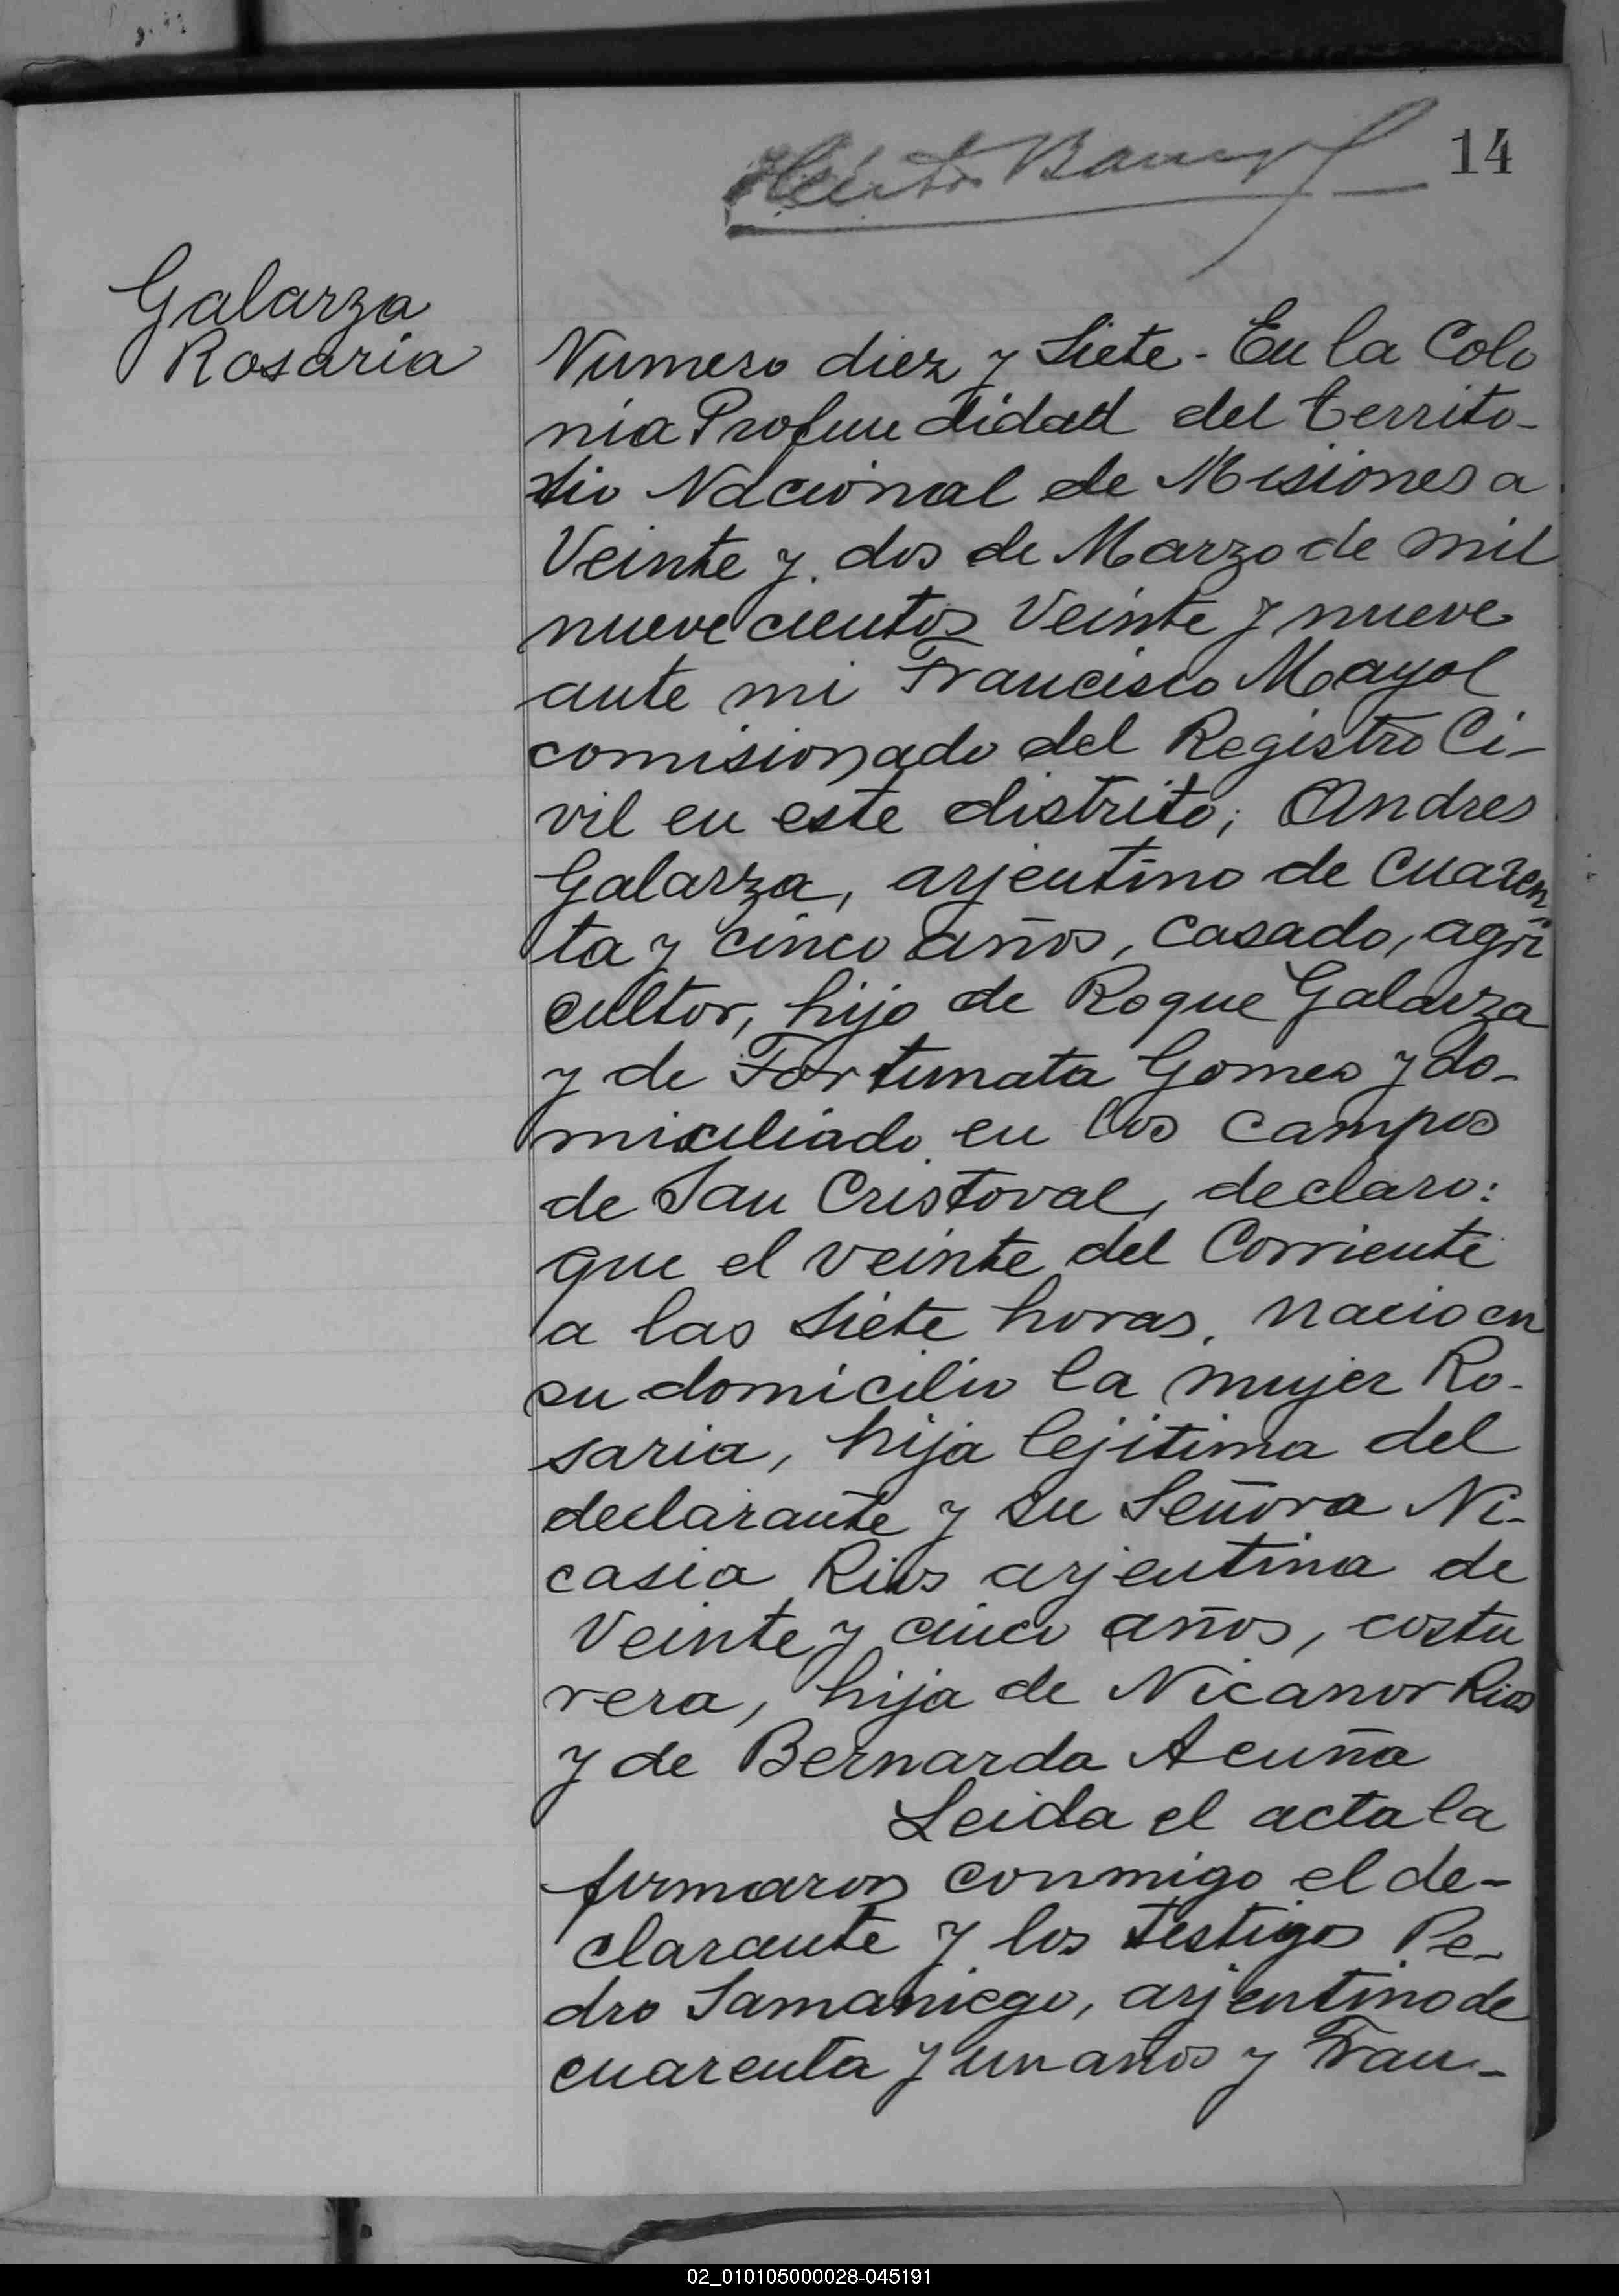 14
Galarza
Rosaria
Numero diez y Siete - En la Colo
nia Profundidad del territo-
rio Nacional de Misiones a
Veinte y dos de Marzo de mil
nueve cientos Veinte y nueve
ante mi Francisco Mayol
comisionado del Registro Ci-
vil en este distrito; Andres
Galarza, arjentino de cuaren
ta y cinco años, casado, agri
cultor, hijo de Roque Galarza
y de Fortunata Gomes y do-
miciliado en los campos
de San Cristoval, declaro:
que el veinte del Corriente
a las Siete horas, nacio en
su domicilio la mujer Ro-
saria, hija lejitima del
declarante y su Señora Ni-
casia Rios arjentina de
Veinte y cinco años, costu
rera, hija de Nicanor Rios
y de Bernarda Acuña
Leida el acta la
firmaron conmigo el de-
clarante y los testigos Pe-
dro Samaniego, arjentino de
cuarenta y un años y Fran-
02_010105000028-045191